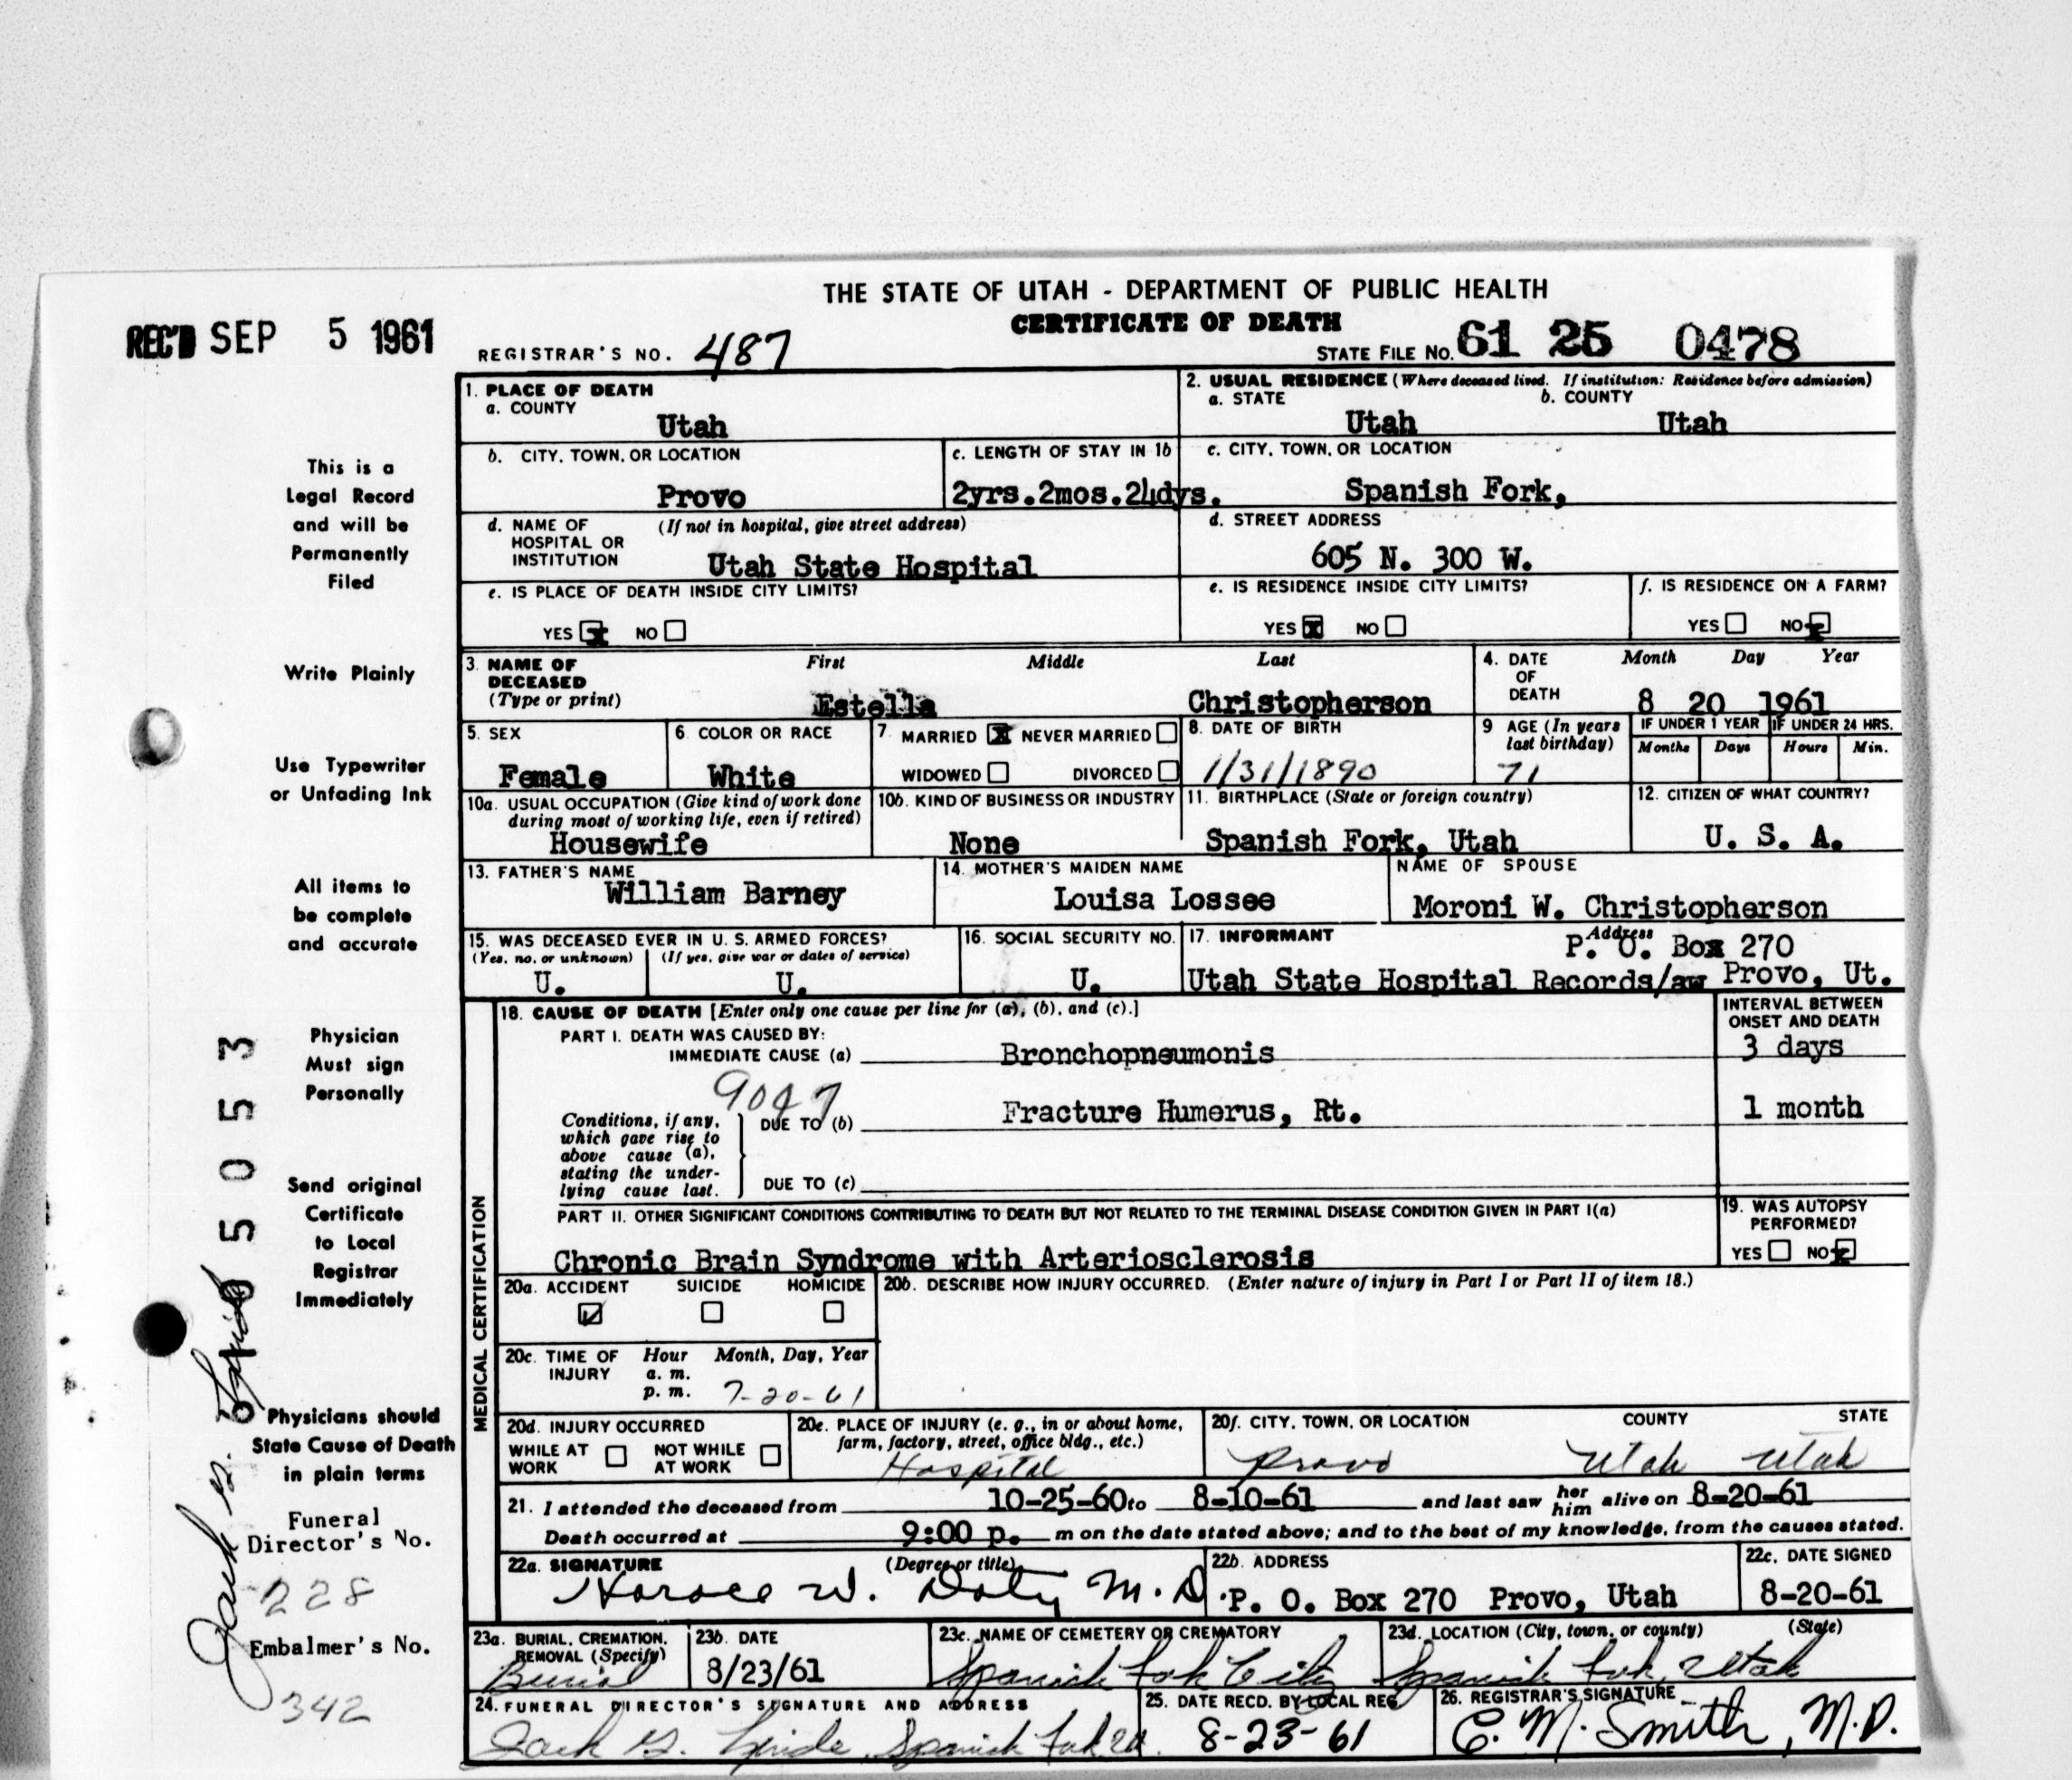 THE STATE OF UTAH - DEPARTMENT OF PUBLIC HEALTH
CERTIFICATE OF DEATH
REC'D SEP 5 1961
REGISTRAR'S NO. 487
STATE FILE NO. 61 25 0478
1. PLACE OF DEATH
a. COUNTY
Utah
2. USUAL RESIDENCE (Where deceased lived. If institution: Residence before admission)
a. STATE b. COUNTY
Utah Utah
b. CITY, TOWN, OR LOCATION
Provo
c. LENGTH OF STAY IN 1b
2yrs.2mos.24dys.
c. CITY, TOWN, OR LOCATION
Spanish Fork,
d. NAME OF HOSPITAL OR INSTITUTION (If not in hospital, give street address)
Utah State Hospital
d. STREET ADDRESS
605 N. 300 W.
e. IS PLACE OF DEATH INSIDE CITY LIMITS?
YES x NO
e. IS RESIDENCE INSIDE CITY LIMITS?
YES x NO
f. IS RESIDENCE ON A FARM?
YES NO x
3. NAME OF DECEASED (Type or print)
First Middle Last
Estella Christopherson
4. DATE OF DEATH
Month Day Year
8 20 1961
5. SEX
Female
6. COLOR OR RACE
White
7. MARRIED x NEVER MARRIED
WIDOWED DIVORCED
8. DATE OF BIRTH
1/31/1890
9 AGE (In years last birthday)
71
IF UNDER 1 YEAR IF UNDER 24 HRS.
Months Days Hours Min.
10a. USUAL OCCUPATION (Give kind of work done during most of working life, even if retired)
Housewife
10b. KIND OF BUSINESS OR INDUSTRY
None
11. BIRTHPLACE (State or foreign country)
Spanish Fork, Utah
12. CITIZEN OF WHAT COUNTRY?
U. S. A.
13. FATHER'S NAME
William Barney
14. MOTHER'S MAIDEN NAME
Louisa Lossee
NAME OF SPOUSE
Moroni W. Christopherson
15. WAS DECEASED EVER IN U. S. ARMED FORCES?
(Yes, no, or unknown) (If yes, give war or dates of service)
U. U.
16. SOCIAL SECURITY NO.
U.
17. INFORMANT Address
P. O. Box 270
Utah State Hospital Records/aw Provo, Ut.
MEDICAL CERTIFICATION
18. CAUSE OF DEATH [Enter only one cause per line for (a), (b), and (c).]
INTERVAL BETWEEN ONSET AND DEATH
PART I. DEATH WAS CAUSED BY:
IMMEDIATE CAUSE (a) Bronchopneumonis 3 days
Conditions, if any, which gave rise to above cause (a), stating the underlying cause last.
DUE TO (b) Fracture Humerus, Rt. 1 month
DUE TO (c)
PART II. OTHER SIGNIFICANT CONDITIONS CONTRIBUTING TO DEATH BUT NOT RELATED TO THE TERMINAL DISEASE CONDITION GIVEN IN PART I(a)
Chronic Brain Syndrome with Arteriosclerosis
19. WAS AUTOPSY PERFORMED?
YES NO x
20a. ACCIDENT SUICIDE HOMICIDE
20b. DESCRIBE HOW INJURY OCCURRED. (Enter nature of injury in Part I or Part II of item 18.)
20c. TIME OF INJURY Hour Month, Day, Year
a. m.
p. m. 7-20-61
20d. INJURY OCCURRED
WHILE AT WORK NOT WHILE AT WORK
20e. PLACE OF INJURY (e. g., in or about home, farm, factory, street, office bldg., etc.)
Hospital
20f. CITY, TOWN, OR LOCATION COUNTY STATE
Provo Utah Utah
21. I attended the deceased from 10-25-60 to 8-10-61 and last saw her him alive on 8-20-61
Death occurred at 9:00 p. m on the date stated above; and to the best of my knowledge, from the causes stated.
22a. SIGNATURE (Degree or title)
Horace W. Doty M.D.
22b. ADDRESS
P. O. Box 270 Provo, Utah
22c. DATE SIGNED
8-20-61
23a. BURIAL, CREMATION, REMOVAL (Specify)
Burial
23b. DATE
8/23/61
23c. NAME OF CEMETERY OR CREMATORY
Spanish Fork City
23d. LOCATION (City, town, or county) (State)
Spanish Fork, Utah
24. FUNERAL DIRECTOR'S SIGNATURE AND ADDRESS
Jack G. Spanish Fork
25. DATE RECD. BY LOCAL REG
8-23-61
26. REGISTRAR'S SIGNATURE
C. M. Smith, M.D.
This is a
Legal Record
and will be
Permanently
Filed
Write Plainly
Use Typewriter
or Unfading Ink
All items to
be complete
and accurate
Physician
Must sign
Personally
Send original
Certificate
to Local
Registrar
Immediately
Physicians should
State Cause of Death
in plain terms
Funeral
Director's No.
228
Embalmer's No.
342